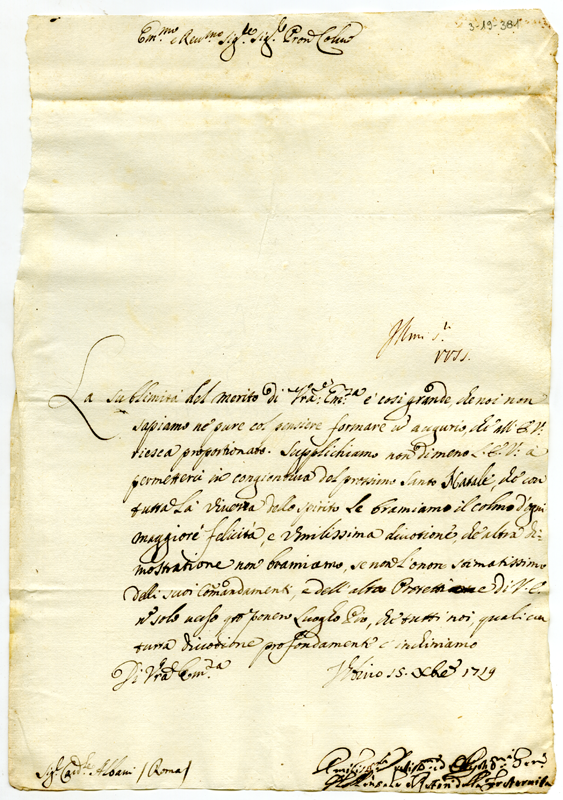 3-19-381
Em.mo e Reu.mo Sig.re Sig.re Pron Colmo
La sublimità del merito di Vra Em.za è cosi grande, che noi non
sappiamo ne pure col pensiere formare un augurio, che all' E.V.
riesca proportionato. Supplichiamo non di meno l'E.V. à
permetterci in congiontura del prossimo Santo Natale che con
tutta la viuezza dello spirito Le bramiamo il colmo d'ogni
maggiore felicità, e diuotione, che altra di-
mostratione non bramiamo, se non L'onore stimatissimo
delli suoi Comandamenti, e dell' alta Protettione di V.E.
nō solo uerso qto pouero Luogho Pio, che tutti noi, quali con
diuotione profondamente c'inchiniamo
Di Vra Em.za Vrbino 15. Xbre 1719
Sig.r Card.le Albani (Roma)
della Fraternita